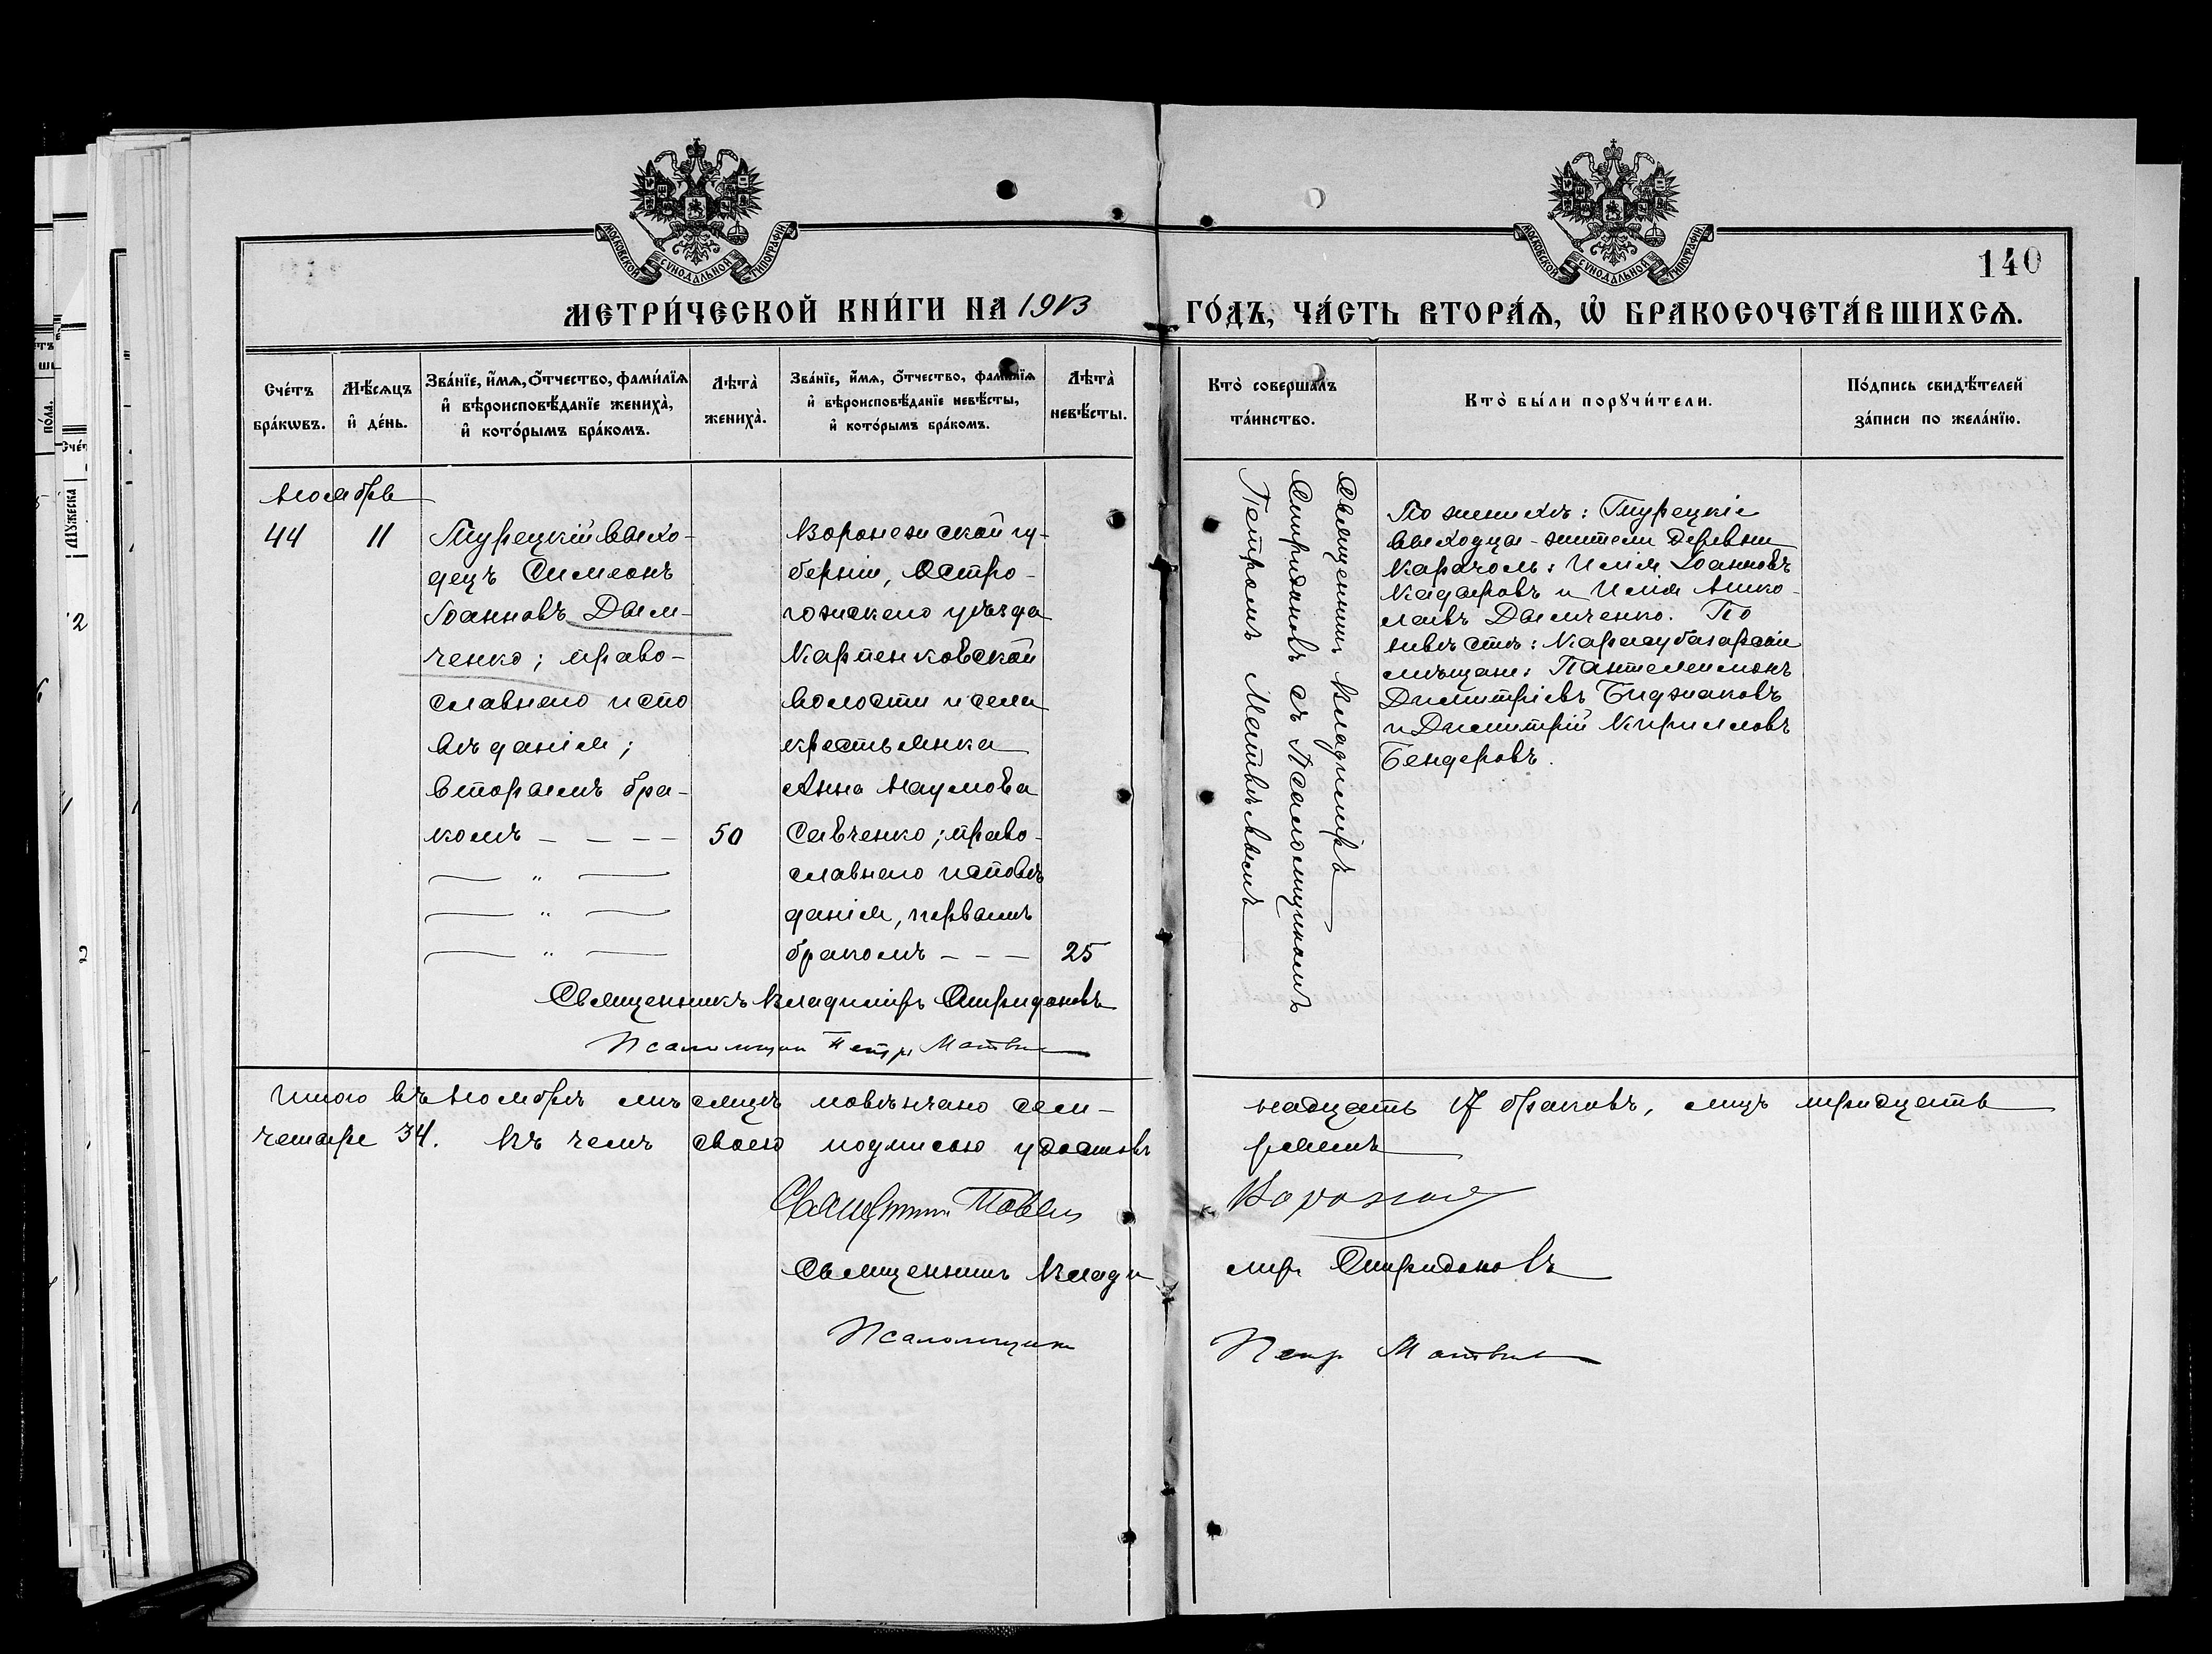 МОСКОВСКОЙ СѴНОДАЛЬНОЙ ТИПОГРАФІИ
МОСКОВСКОЙ СѴНОДАЛЬНОЙ ТИПОГРАФІИ
140
МЕТРИ́ЧЕСКОЙ КНИ́ГИ НА 1913
ГО́ДЪ, ЧА́СТЬ ВТОРА́Ѧ, Ѡ҆ БРАКОСОЧЕТА́ВШИХСѦ.
Сче́тъ бра́кѡвъ.
Мѣ́сяцъ и҆ де́нь.
Зва́нїе, и҆́мѧ, ѻ҆́тчество, фами́лїѧ
и҆ вѣроисповѣ́данїе жениха̀,
и҆ кото́рымъ бра́комъ.
Лѣта̀ жениха̀.
Зва́нїе, и҆́мѧ, ѻ҆́тчество, фами́лїѧ
и҆ вѣроисповѣ́данїе невѣ́сты,
и҆ кото́рымъ бра́комъ.
Лѣта̀ невѣ́сты.
Кто̀ соверша́лъ та́инство.
Кто̀ бы́ли порꙋчи́тели.
По́дпись свидѣ́телей за́писи по жела́нїю.
Ноябрь
44
11
Турецкій выхо-
децъ Симеонъ
Іоанновъ Дым-
ченко; право-
славнаго испо
вѣданія;
вторымъ бра-
комъ – – – –
50
Воронежской гу-
берніи, Остро-
гожскаго уѣзда
Карпенковской
волости и села
крестьянка
Анна Наумова
Савченко; право-
славнаго исповѣ
данія, первымъ
бракомъ – – –
25
Священникъ Владиміръ
Спиридоновъ съ Псаломщикомъ
Петромъ Матвѣевымъ
По женихѣ: Турецкіе
выходцы-жители деревни
Карачоль: Илія Іоанновъ
Кадыровъ и Илія Нико-
лаевъ Дымченко. По
невѣстѣ: Карасубазарскіе
мѣщане: Пантелеимонъ
Димитріевъ Биджаковъ
и Димитрій Кирилловъ
Бендеровъ.
Священникъ Владиміръ Спиридоновъ
Псаломщик Петръ Матвѣев
Итого въ Ноябрѣ мѣсяцѣ повѣнчано сем-
надцать 17 браковъ, лицъ тридцать
четыре 34. Въ чемъ своею подписью удостовѣ
ряемъ
Священник
Священникъ Влади
мір Спиридоновъ
Псаломщик
Петр Матвѣев